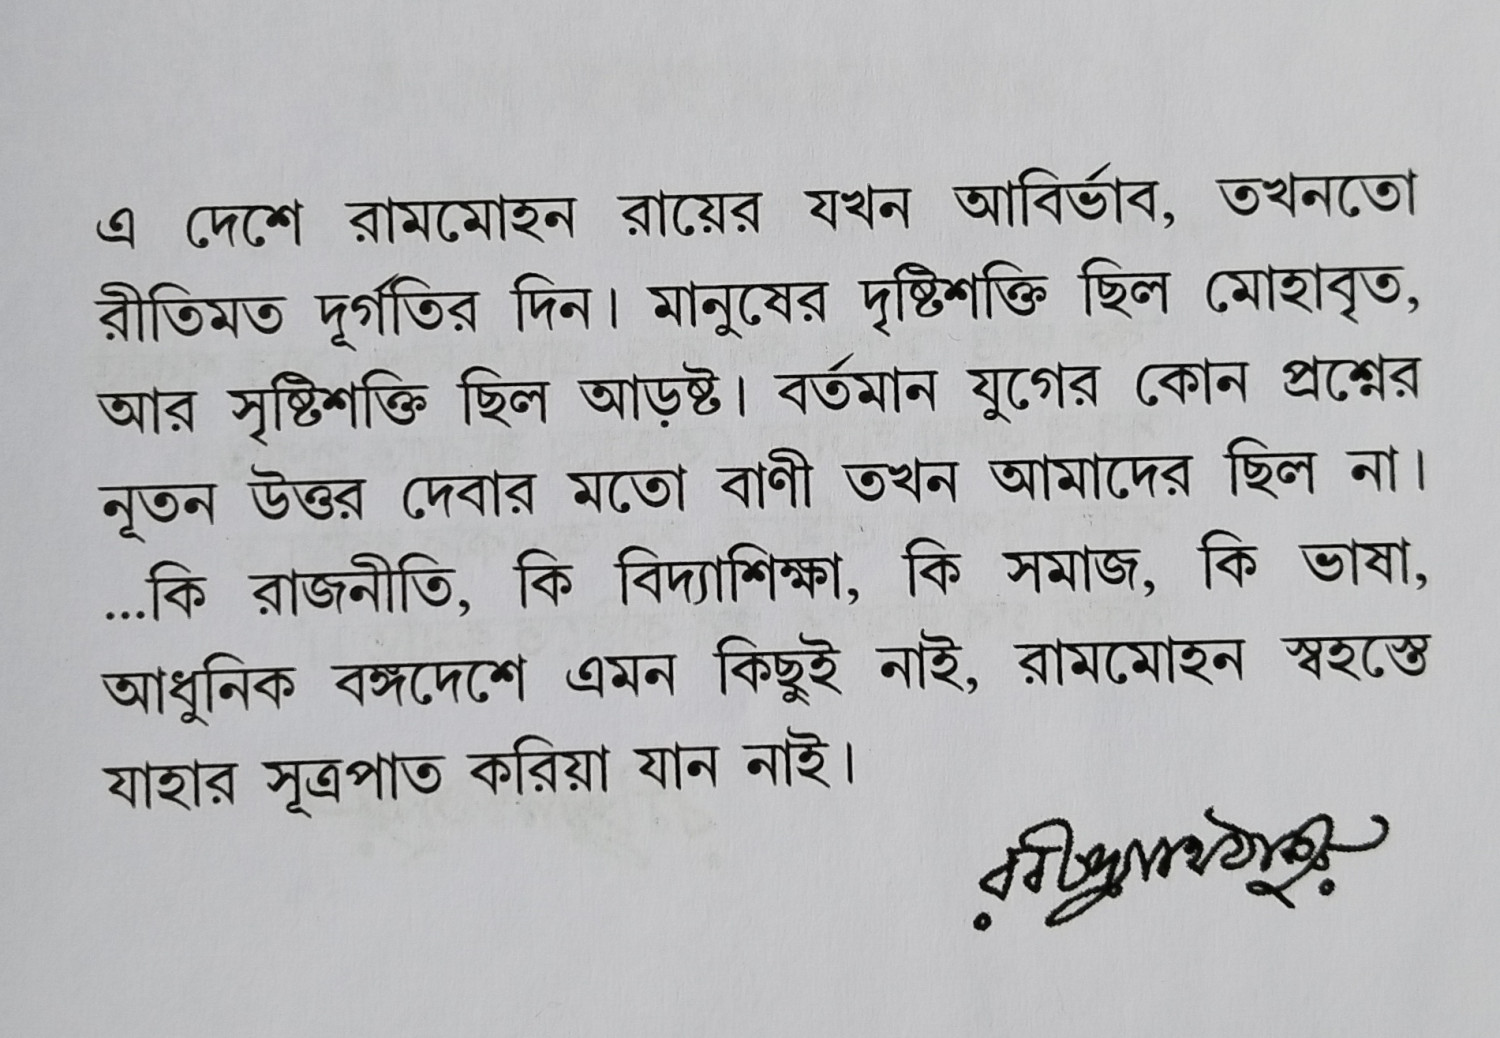 এ দেশে রামমোহন রায়ের যখন আবির্ভাব, তখনতো
রীতিমত দূর্গতির দিন। মানুষের দৃষ্টিশক্তি ছিল মোহাবৃত,
আর সৃষ্টিশক্তি ছিল আড়ষ্ট। বর্তমান যুগের কোন প্রশ্নের
নূতন উত্তর দেবার মতো বাণী তখন আমাদের ছিল না।
...কি রাজনীতি, কি বিদ্যাশিক্ষা, কি সমাজ, কি ভাষা,
আধুনিক বঙ্গদেশে এমন কিছুই নাই, রামমোহন স্বহস্তে
যাহার সূত্রপাত করিয়া যান নাই।
রবীন্দ্রনাথ ঠাকুর